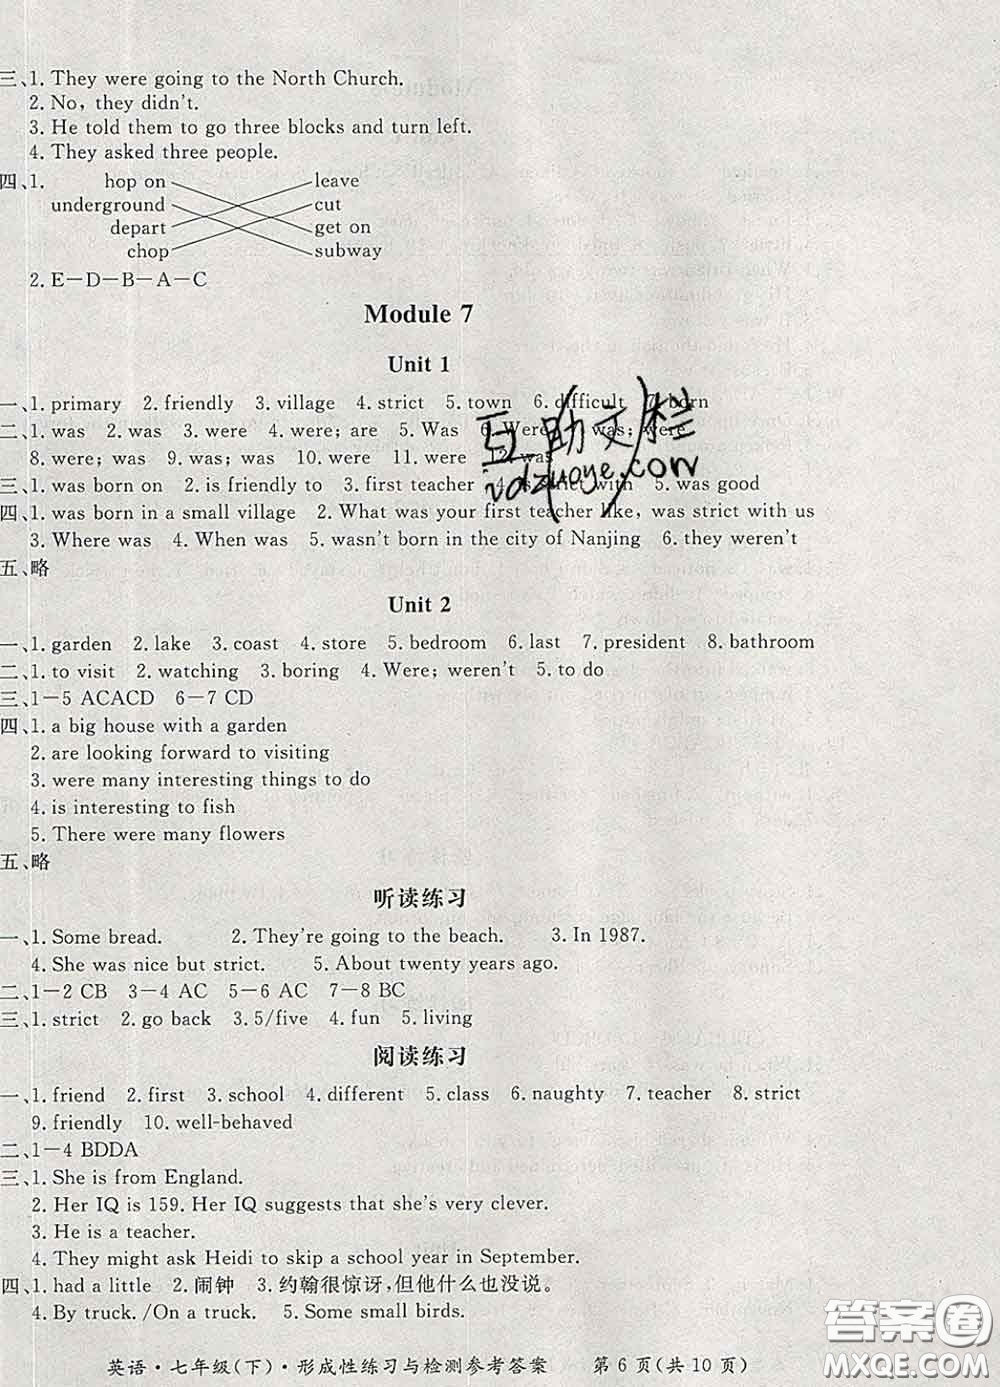 三、1. They were going to the North Church.
2. No, they didn't.
3. He told them to go three blocks and turn left.
4. They asked three people.
四、1. hop on leave
underground cut
depart get on
chop subway
2. E－D－B－A－C
Module 7
Unit 1
一、1. primary 2. friendly 3. village 4. strict 5. town 6. difficult 7. born
二、1. was 2. was 3. were 4. were; are 5. Was 6. Were 7. was; were
8. were; was 9. was; was 10. were 11. were 12. was
三、1. was born on 2. is friendly to 3. first teacher 4. is strict with 5. was good
四、1. was born in a small village 2. What was your first teacher like, was strict with us
3. Where was 4. When was 5. wasn't born in the city of Nanjing 6. they weren't
五、略
Unit 2
一、1. garden 2. lake 3. coast 4. store 5. bedroom 6. last 7. president 8. bathroom
二、1. to visit 2. watching 3. boring 4. Were; weren't 5. to do
三、1－5 ACACD 6－7 CD
四、1. a big house with a garden
2. are looking forward to visiting
3. were many interesting things to do
4. is interesting to fish
5. There were many flowers
五、略
听读练习
一、1. Some bread. 2. They're going to the beach. 3. In 1987.
4. She was nice but strict. 5. About twenty years ago.
二、1－2 CB 3－4 AC 5－6 AC 7－8 BC
三、1. strict 2. go back 3. 5/five 4. fun 5. living
阅读练习
一、1. friend 2. first 3. school 4. different 5. class 6. naughty 7. teacher 8. strict
9. friendly 10. well-behaved
二、1－4 BDDA
三、1. She is from England.
2. Her IQ is 159. Her IQ suggests that she's very clever.
3. He is a teacher.
4. They might ask Heidi to skip a school year in September.
四、1. had a little 2. 闹钟 3. 约翰很惊讶,但他什么也没说。
4. By truck. /On a truck. 5. Some small birds.
英语·七年级(下)·形成性练习与检测参考答案 第 6 页(共 10 页)
互助文栏
vdzuoye.com
答案圈
MXQE.COM